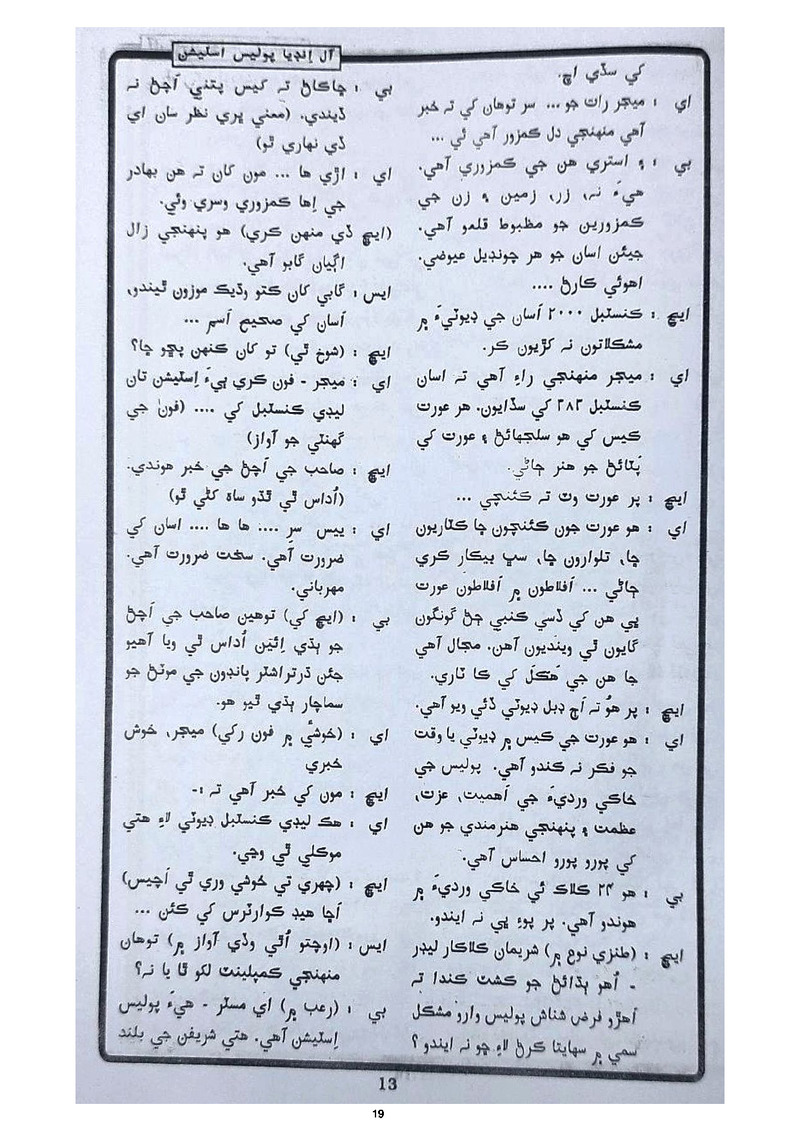 آل انڊيا پوليس اسٽيشن
کي سڏي اچ.
اي : ميجر رات جو ... سر توهان کي ته خبر
آهي منهنجي دل ڪمزور آهي ئي ...
بي : ۽ استري هن جي ڪمزوري آهي.
هيءَ نہ، زر، زمين ۽ زن جي
ڪمزورين جو مظبوط قلعو آهي.
جيئن اسان جو هر چونڊيل عيوضي.
اهوئي ڪارڻ ....
ايڇ : ڪنسٽبل ۲۰۰۰ اَسان جي ڊيوٽيءَ ۾
مشڪلاتون نہ کڙيون ڪر.
اي : ميجر منهنجي راءِ آهي تہ اسان
ڪنسٽبل ۲۸۲ کي سڏايون. هر عورت
ڪيس کي هو سلجهائڻ ۽ عورت کي
پَٽائڻ جو هنر ڄاڻي.
ايڇ : پر عورت وٽ تہ ڪئنچي ...
اي : هو عورت جون ڪئنچون ڇا ڪٽاريون
ڇا، تلوارون ڇا، سڀ بيڪار ڪري
ڄاڻي ... اَفلاطون ۾ اَفلاطون عورت
ڀي هن کي ڏسي ڪنبي ڄڻ گونگون
گايون ٿي وينديون آهن. مجال آهي
جا هن جي هَڪلَ کي ڪا ٽاري.
ايڇ : پر هُو تہ اَڄ ڊبل ڊيوٽي ڏئي ويو آهي.
اي : هو عورت جي ڪيس ۾ ڊيوٽي يا وقت
جو فڪر نہ ڪندو آهي. پوليس جي
خاڪي ورديءَ جي اَهميت، عزت،
عظمت ۽ پنهنجي هنرمندي جو هن
کي پورو پورو احساس آهي.
بي : هو ۲۴ ڪلاڪ ئي خاڪي ورديءَ ۾
هوندو آهي. پر پوءِ ڀي نہ ايندو.
ايڇ : (طنزي نوع ۾) شريمان ڪلاڪار ليڊر
- اُهو ٻڌائڻ جو ڪشٽ ڪندا تہ
اَهڙو فرض شناش پوليس وارو مشڪل
سمي ۾ سهايتا ڪرڻ لاءِ ڇو نہ ايندو ؟
بي : ڇاڪاڻ تہ ڪيس پتني اَچڻ نہ
ڏيندي. (معني ڀري نظر سان اي
ڏي نهاري ٿو)
اي : اڙي ها ... مون کان تہ هن بهادر
جي اِها ڪمزوري وسري وئي.
(ايڇ ڏي منهن ڪري) هو پنهنجي زال
اڳيان گابو آهي.
ايس : گابي کان ڪتو وڌيڪ موزون ٿيندو،
اَسان کي صحيح اَسم ...
ايڇ : (شوخ ٿي) تو کان ڪنهن پڇو ڇا؟
اي : ميجر - فون ڪري ٻيءَ اِسٽيشن تان
ليڊي ڪنسٽبل کي .... (فون جي
گهنٽي جو آواز)
ايڇ : صاحب جي اَچڻ جي خبر هوندي.
(اُداس ٿي ٿڌو ساه کڻي ٿو)
اي : ييس سر .... ها ها .... اسان کي
ضرورت آهي. سخت ضرورت آهي.
مهرباني.
بي : (ايڇ کي) توهين صاحب جي اَچڻ
جو ٻڌي اِئين اُداس ٿي ويا آهيو
جئن ڌرتراشٽر پانڊون جي موٽڻ جو
سماچار ٻڌي ٿيو هو.
اي : (خوشيءَ ۾ فون رکي) ميجر، خوش
خبري
ايڇ : مون کي خبر آهي تہ :-
اي : هڪ ليڊي ڪنسٽبل ڊيوٽي لاءِ هتي
موڪلي ٿي وڃي.
ايڇ : (چهري تي خوشي وري ٿي اَچيس)
اَڇا هيڊ ڪوارٽرس کي ڪئن ...
ايس : (اوچتو اُٿي وڏي آواز ۾) توهان
منهنجي ڪمپلينٽ لکو ٿا يا نہ؟
بي : (رعب ۾) اي مسٽر - هيءَ پوليس
اِسٽيشن آهي. هتي شريفن جي بلند
13
19